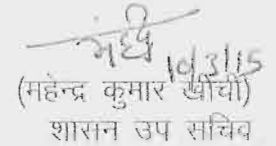 10/3/15
(महेन्द्र कुमार खींची)
शासन उप सचिव